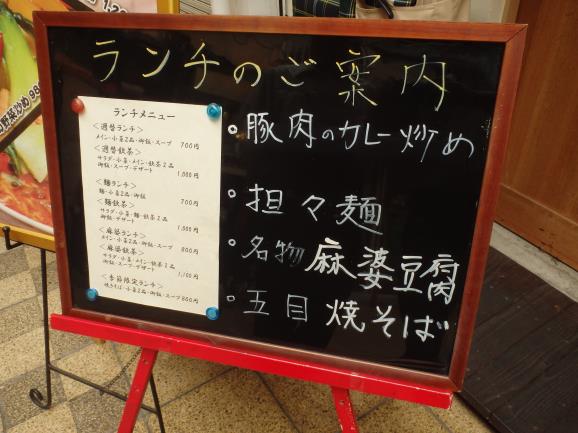 ランチのご案内
ランチメニュー
＜週替ランチ＞
メイン・小菜2品・御飯・スープ 700円
＜週替飲茶＞
サラダ・小菜・メイン・飲茶2品
御飯・スープ・デザート 1,000円
＜麺ランチ＞
麺・小菜2品・御飯 700円
＜麺飲茶＞
サラダ・小菜・麺・飲茶2品
御飯・デザート 1,000円
＜麻婆ランチ＞
メイン・小菜2品・御飯・スープ 800円
＜麻婆飲茶＞
サラダ・小菜・メイン・飲茶2品
御飯・スープ・デザート 1,100円
＜季節限定ランチ＞
焼きそば・小菜2品・御飯・スープ 800円
・豚肉のカレー炒め
・担々麺
・名物 麻婆豆腐
・五目 焼そば
野菜炒め 98